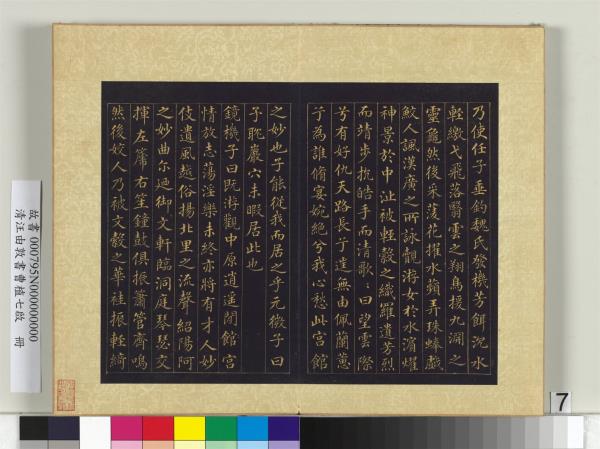 乃使任子垂釣魏氏發機芳餌沉水
輕繳弋飛落翳雲之翔鳥援九淵之
靈龜然後采菱花擢水蘋弄珠蜯戲
鮫人諷漢廣之所詠覿游女於水濱燿
神景於中沚被輕縠之纖羅遺芳烈
而靖步抗皓手而清歌歌曰望雲際
兮有好仇天路長兮往無由佩蘭蕙
兮為誰脩宴婉絕兮我心愁此宮館
之妙也子能從我而居之乎元微子曰
予耽巖穴未暇居此也
鏡機子曰既游觀中原逍遙閒館宮
情放志蕩淫樂未終亦將有才人妙
伎遺風越俗揚北里之流聲紹陽阿
之妙曲尔迺御文軒臨洞庭琴瑟交
揮左篪右笙鐘鼓俱振簫管齊鳴
然後姣人乃被文縠之華袿振輕綺
故書 000795N000000000
清汪由敦書曹植七啟 冊
7